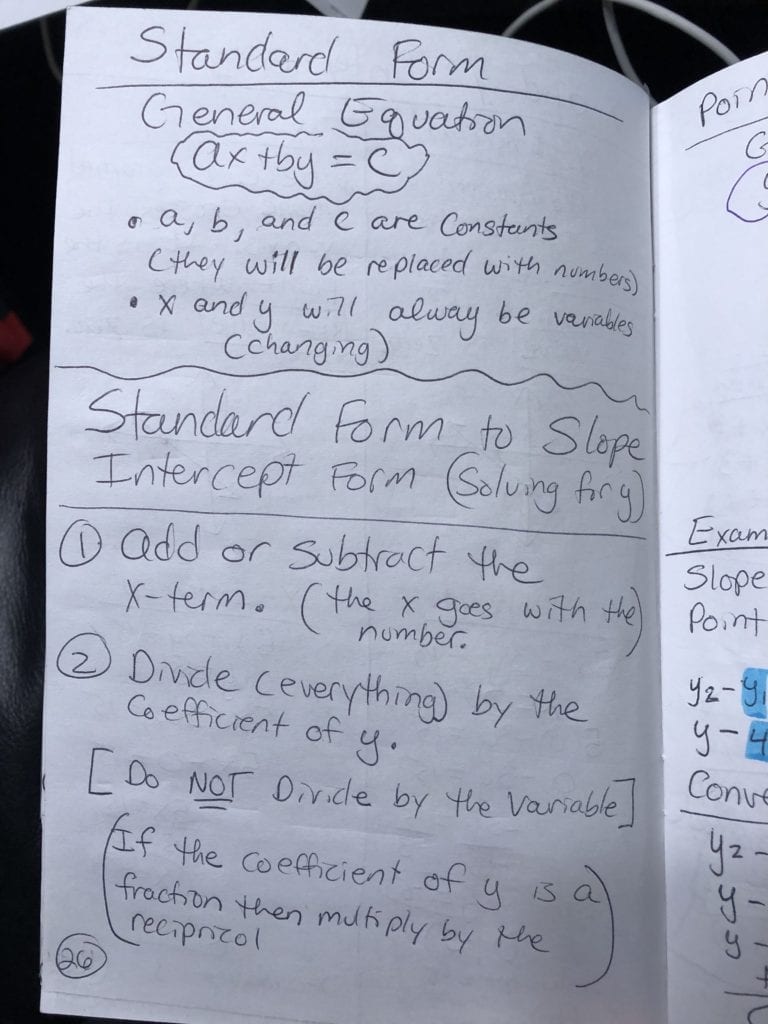 Standard Form
General Equation
ax + by = c
• a, b, and c are constants
(they will be replaced with numbers)
• x and y will alway be variables
(changing)
Standard Form to Slope
Intercept Form (Solving for y)
① add or subtract the
x-term. (the x goes with the
number.)
② Divide (everything) by the
coefficient of y.
[Do NOT Divide by the variable]
(If the coefficient of y is a
fraction then multiply by the
reciprizol)
26
Poin
G
Exam
Slope
Point
y2 - y1
y - 4
Conve
y2 -
y -
y -
+